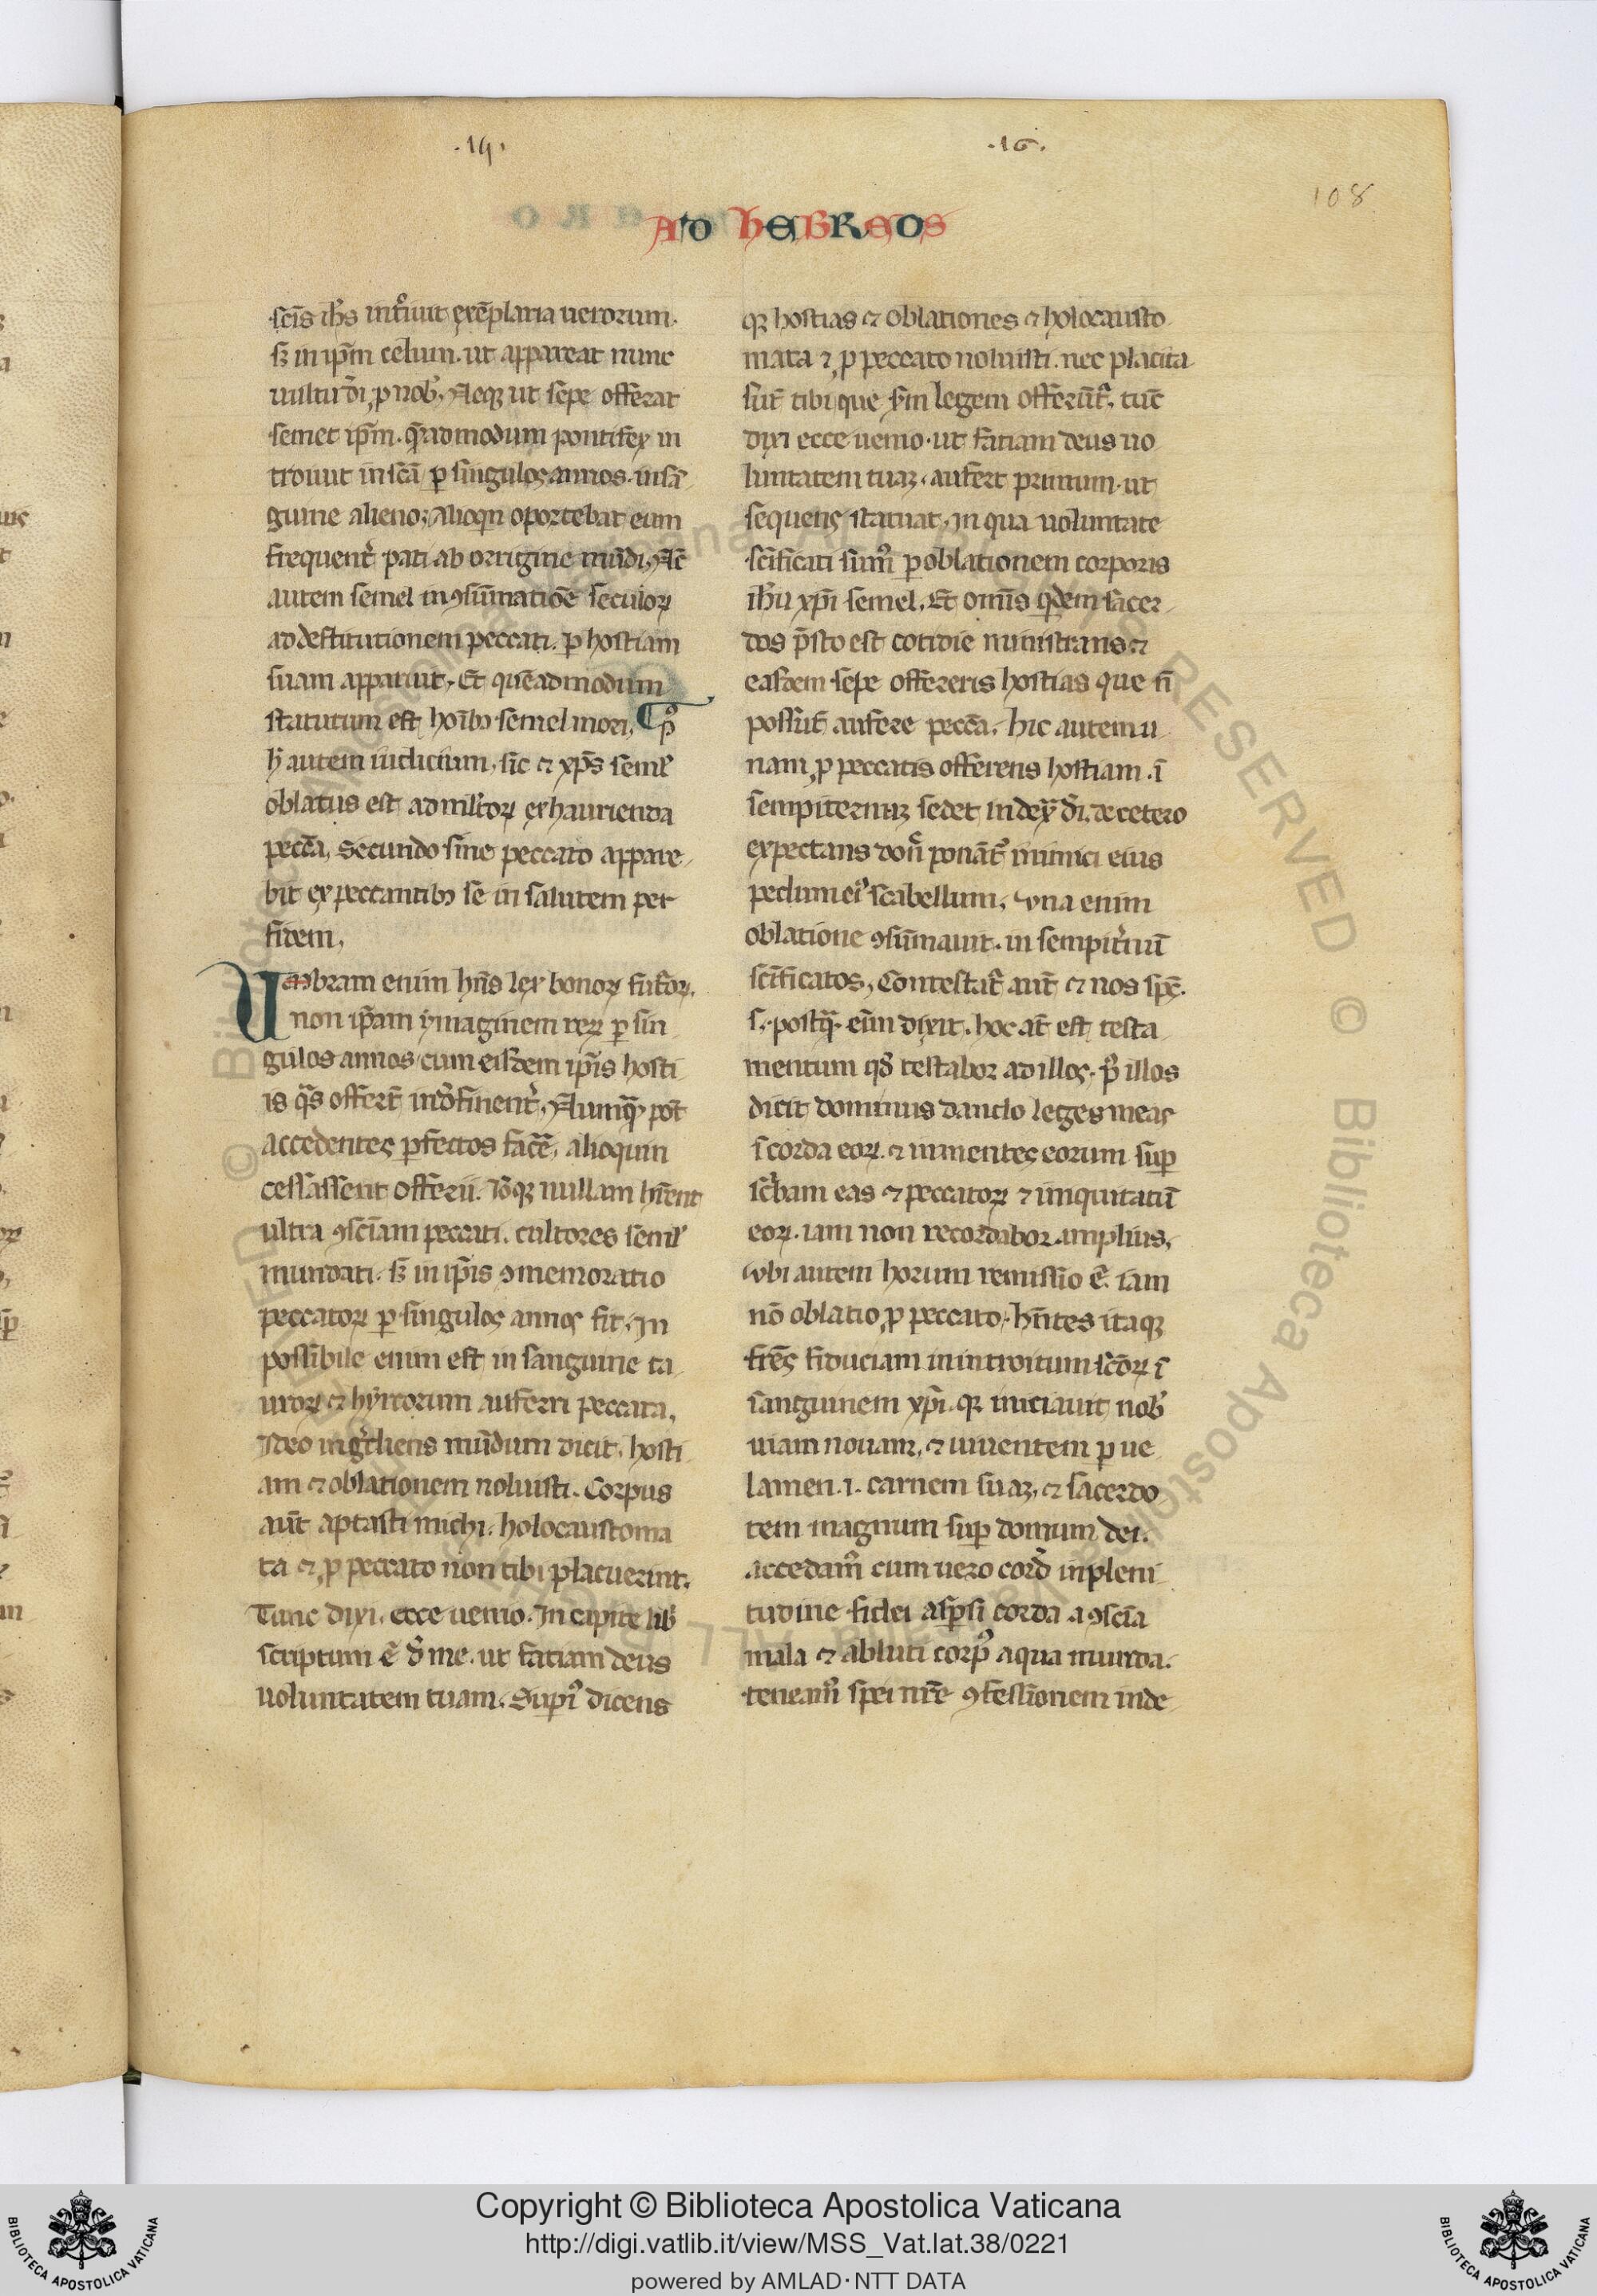 .19.
.16.
108
AD HEBREOS
scīs ih̄s intͥuit exēplaria uerorum.
sꝫ in ip̄m celum. ut appareat nunc
uultui dī ꝓ nob̾. Neqꝫ ut sepe offerat
semet ip̄m. q̄admodum pontifex in
troiuit in scā ꝑ singulos annos. in sā
guine alieno. Alioqn oportebat eum
frequent̾ pati ab orrigine mūdi. Nc̄
autem semel in ꝯsūmatiōe seculoꝝ
ad destitutionem peccati. ꝑ hostiam
suam apparuit. Et quēadmodum
statutum est hoīb; semel mori. pꝰ
h̾ autem iudicium. sic ⁊ xp̄s seml̾
oblatus est ad ml̾toꝝ exhaurienda
pecc̄a. Secundo sine peccato appare
bit expectantib; se in salutem per
fidem.
Umbram enim hn̄s lex bonoꝝ futoꝝ.
non ip̄am ymaginem reꝝ ꝑ sin
gulos annos cum eisdem ip̄is hosti
is q̄s offert̄ indesinent̾. Nunqͣ pot̄
accedentes ꝑfectos fac̄e. alioquin
cessassent offerri. Ideo qꝫ nullam hr̄ent
ultra ꝯsciam peccati. cultores seml̾
mundati. sꝫ in ip̄is ꝯmemoratio
peccatoꝝ ꝑ singulos annos fit. In
possibile enim est in sanguine ta
uroꝝ ⁊ hyrcorum auferri peccata.
Ideo ingr̄diens mūdum dicit. hosti
am ⁊ oblationem noluisti. Corpus
aut̄ aptasti michi. holocaustoma
ta ⁊ ꝓ peccato non tibi placuerunt.
Tunc dixi. ecce uenio. In capite lib̾
scriptum ē d̾ me. ut fatiam deus
uoluntatem tuam. Supi̾ dicens
qꝫ hostias ⁊ oblationes ⁊ holocausto
mata ⁊ ꝓ peccato noluisti. nec placita
sūt tibi que sm̄ legem offerūt̾. tūc
dixi ecce uenio. ut fatiam deus uo
luntatem tuaꝫ. aufert primum. ut
sequens statuat. In qua uoluntate
scīficati sumꝰ ꝑ oblationem corporis
ih̄u xp̄i semel. Et omīs qͥdem sacer
dos p̄sto est cotidie ministrans ⁊
easdem sepe offereris hostias que n̄
possūt aufere pecc̄a. hic autem u
nam ꝓ peccatis offerens hostiam. ī
sempiternuꝫ sedet in dex̾ dī. de cetero
expectans don̄ ponāt̾ inimici eius
pedum eiꝰ scabellum. Una enim
oblatione ꝯsūmauit. in sempit̾nū
scīficatos. Contestat̾ aut̄ ⁊ nos sp̄c.
s. postqͣ. eīm dixit. hoc at̄ est testa
mentum qd̾ testabor ad illos. pꝰ illos
dicit dominus dando leges meas
ī corda eoꝝ. ⁊ in mentes eorum suꝑ
sc̾bam eas ⁊ peccatoꝝ ⁊ iniquitatū
eoꝝ. iam non recordabor amplius.
Ubi autem horum remissio ē. iam
nō oblatio ꝓ peccato. hn̄tes itaqꝫ
fr̄es fiduciam in introitum sc̄oꝝ ī
sanguinem xp̄i. qꝫ iniciauit nob̾
uiam nouam. ⁊ uiuentem ꝑ ue
lamen .i. carnem suaꝫ. ⁊ sacerdo
tem magnum suꝑ domum dei.
accedamꝰ cum uero cord̾ in pleni
tudine fidei asꝑsi corda a ꝯscīa
mala ⁊ abluti corpꝰ aqua munda.
teneamꝰ spei nr̄e ꝯfessionem inde
Copyright © Biblioteca Apostolica Vaticana
http://digi.vatlib.it/view/MSS_Vat.lat.38/0221
powered by AMLAD·NTT DATA